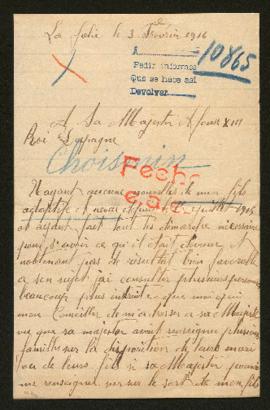 La Folie le 3 Février 1916
A
Pedir informes
Que se hace así
Devolver
10865
A Sa Majesté Alfonse XIII
Roi d'Espagne
Choismin
Fecho
N'ayant aucune nouvelles de mon fils
adoptif et neveu depuis le juillet 1915
et ayant fait tout les démarche nécessaire
pour savoir ce qu'il était devenu et
n'obtenant pas de résultat bien favorable
a son sujet j'ai consulter plusieurs personnes
beaucoup plus instruite que moi qui
mon Conseiller de m'adresser a sa Majesté
vu que sa majesté avait renseigné plusieurs
familles sur la disposition de leurs maris
ou de leurs fils si sa Majesté pouvait
me renseigner sur le sort de mon fils